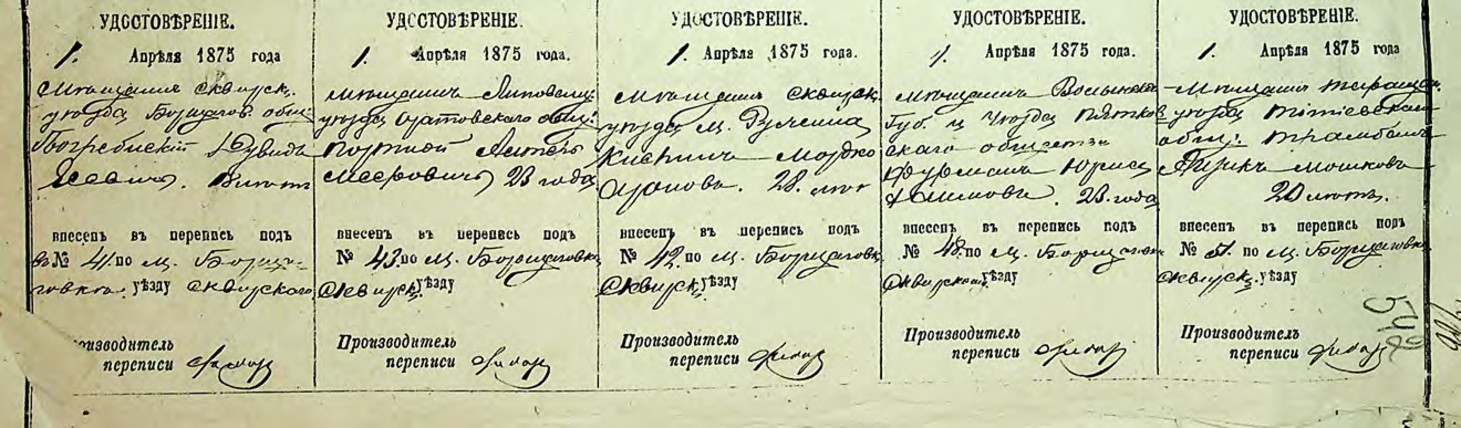 УДОСТОВѢРЕНІЕ.
1. Апрѣля 1875 года
Мѣщанинъ сквирск.
уѣзда Борщагов. общ.
Погребискій Дувидъ
внесенъ въ перепись подъ
въ № 41. по м. Борща-
говкѣ. уѣзду сквирскаго
Производитель
переписи
УДОСТОВѢРЕНІЕ.
1. Апрѣля 1875 года.
мѣщанинъ Липовец.
уѣзда Оратовскаго общ:
Портной
Мееровичъ 23 года
внесенъ въ перепись подъ
№ 43. по м. Борщаговк.
Сквирск. уѣзду
Производитель
переписи
УДОСТОВѢРЕНІЕ.
1. Апрѣля 1875 года.
мѣщанинъ сквирск.
уѣзда м. Ружина
Мордко
28. лѣт
внесенъ въ перепись подъ
№ 42. по м. Борщаговк.
Сквирск. уѣзду
Производитель
переписи
УДОСТОВѢРЕНІЕ.
1. Апрѣля 1875 года.
мѣщанинъ Волынской
Губ. и уѣзда Пятков
скаго общества
Фурманъ
Хаимовъ. 23. года
внесенъ въ перепись подъ
№ 48. по м. Борщаговк
Сквирском. уѣзду
Производитель
переписи
УДОСТОВѢРЕНІЕ.
1. Апрѣля 1875 года
мѣщанинъ таращан.
уѣзда тетіевскаго
общ:
Айзикъ Мошковъ
20 лѣтъ.
внесенъ въ перепись подъ
№ 51. по м. Борщаговк
Сквирск. уѣзду
Производитель
переписи